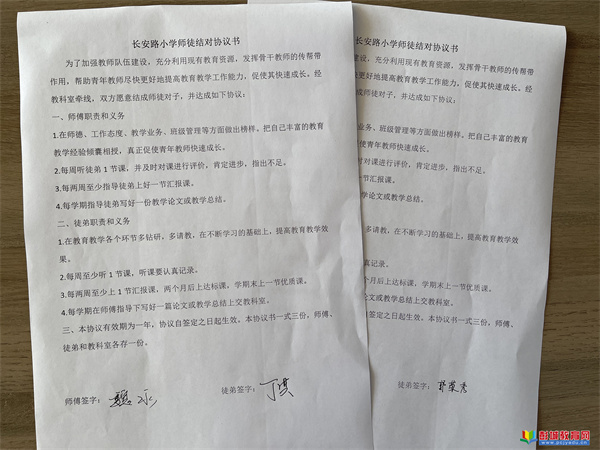 长安路小学师徒结对协议书
为了加强教师队伍建设，充分利用现有教育资源，发挥骨干教师的传帮带
作用，帮助青年教师尽快更好地提高教育教学工作能力，促使其快速成长。经
教科室牵线，双方愿意结成师徒对子，并达成如下协议：
一、师傅职责和义务
1.在师德、工作态度、教学业务、班级管理等方面做出榜样。把自己丰富的教育
教学经验倾囊相授，真正促使青年教师快速成长。
2.每周听徒弟1节课，并及时对课进行评价，肯定进步，指出不足。
3.每两周至少指导徒弟上好一节汇报课。
4.每学期指导徒弟写好一份教学论文或教学总结。
二、徒弟职责和义务
1.在教育教学各个环节多钻研，多请教，在不断学习的基础上，提高教育教学效
果。
2.每周至少听1节课，听课要认真记录。
3.每两周至少上1节汇报课，两个月后上达标课，学期末上一节优质课。
4.每学期在师傅指导下写好一篇论文或教学总结上交教科室。
三、本协议有效期为一年，协议自签定之日起生效。本协议书一式三份，师傅、
徒弟和教科室各存一份。
师傅签字：
徒弟签字：丁琪
长安路小学师徒结对协议书
建设，充分利用现有教育资源，发挥骨干教师的传帮带
快更好地提高教育教学工作能力，促使其快速成长。经
成师徒对子，并达成如下协议：
业务、班级管理等方面做出榜样。把自己丰富的教育
促使青年教师快速成长。
时对课进行评价，肯定进步，指出不足。
一节汇报课。
学论文或教学总结。
，多请教，在不断学习的基础上，提高教育教学效
真记录。
两个月后上达标课，学期末上一节优质课。
论文或教学总结上交教科室。
自签定之日起生效。本协议书一式三份，师傅、
徒弟签字：
彭城教育网